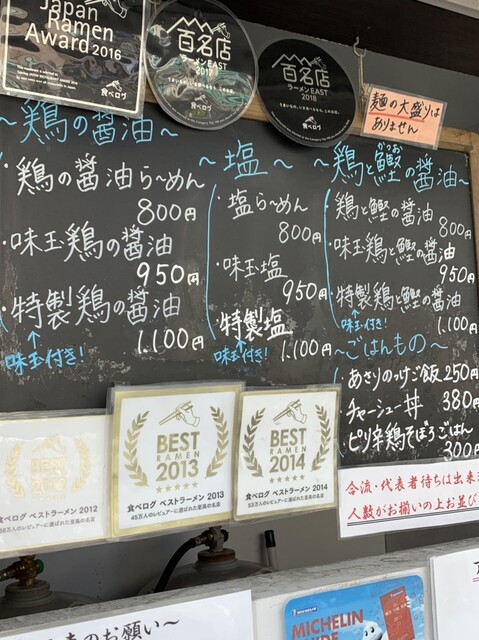 Japan
Ramen
Award 2016
食べログ
百名店
ラーメンEAST
2017
食べログ
百名店
ラーメンEAST
2018
食べログ
麺の大盛りは
ありません
～鶏の醤油～
・鶏の醤油ら～めん
800円
・味玉鶏の醤油
950円
・特製鶏の醤油
↑
味玉付き!
1.100円
～塩～
・塩らーめん
800円
・味玉塩
950円
・特製塩
↑
味玉付き!
1.100円
かつお
～鶏と鰹の醤油～
鶏と鰹の醤油
800円
・味玉鶏と鰹の醤油
950円
・特製鶏と鰹の醤油
↑
味玉付き!
1.100円
～ごはんもの～
あさりのっけご飯 250円
チャーシュー丼 380円
・ピリ辛鶏そぼろごはん
300円
食べログ ベストラーメン 2012
BEST
RAMEN
2013
食べログ ベストラーメン 2013
45万人のレビュアーに選ばれた至高の名店
BEST
RAMEN
2014
食べログ ベストラーメン 2014
53万人のレビュアーに選ばれた至高の名店
合流・代表者待ちは出来ま
人数がお揃いの上お並び
のお願い～
MICHELIN
MICHELIN